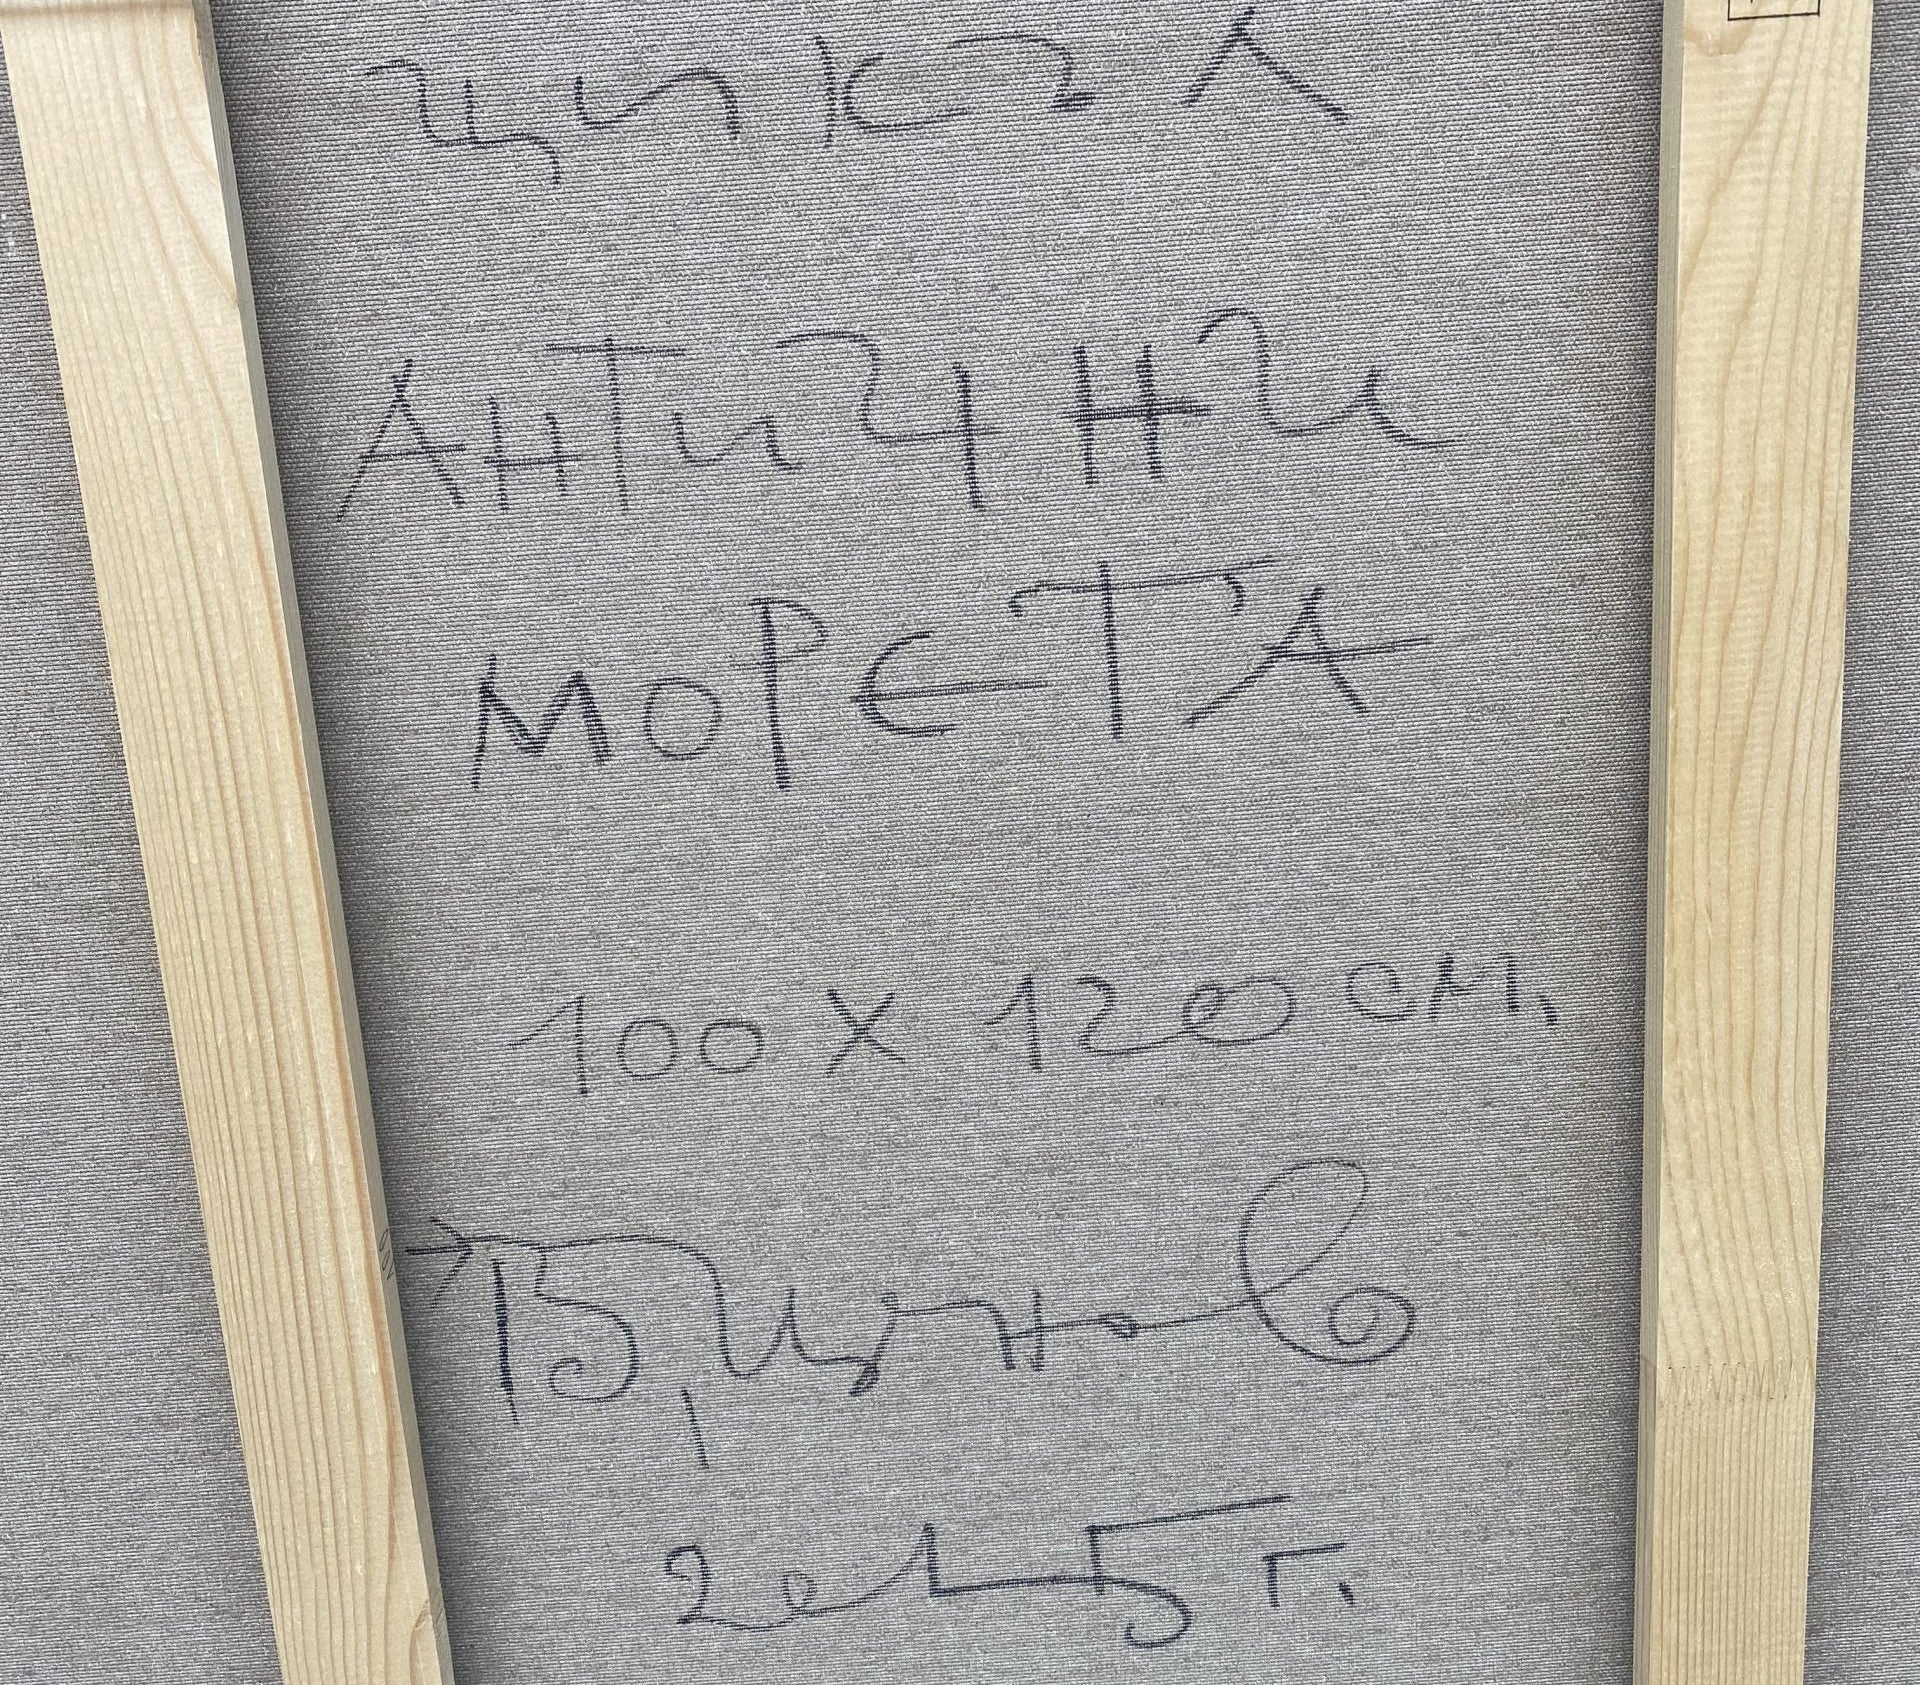 цикъл
АНТИЧНИ
МОРЕТА
100 X 120 см.
2015 г.